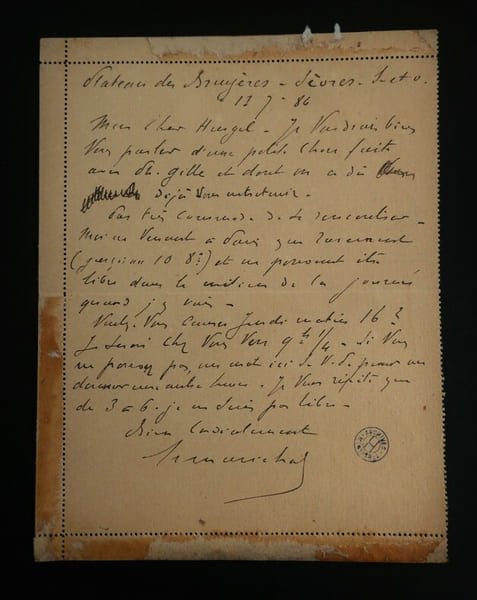 Plateau des Bruyères - Sèvres. S. et O.
13 7 86
Mon cher Heugel - Je voudrais bien
vous parler d'une petite chose faite
avec Ph. Gille et dont on a dû
déjà vous entretenir -
Pas très commode de se rencontrer -
moi ne venant à Paris que rarement
(jusqu'au 10 8bre) et ne pouvant être
libre dans le milieu de la journée
quand j'y vais -
Voulez-vous causer Jeudi matin 16 ?
Je serai chez vous vers 9h 1/4 - Si vous
ne pouvez pas, un mot ici de V. S. pour me
donner une autre heure. Je vous répète que
de 3 à 6 je ne suis pas libre -
Bien cordialement